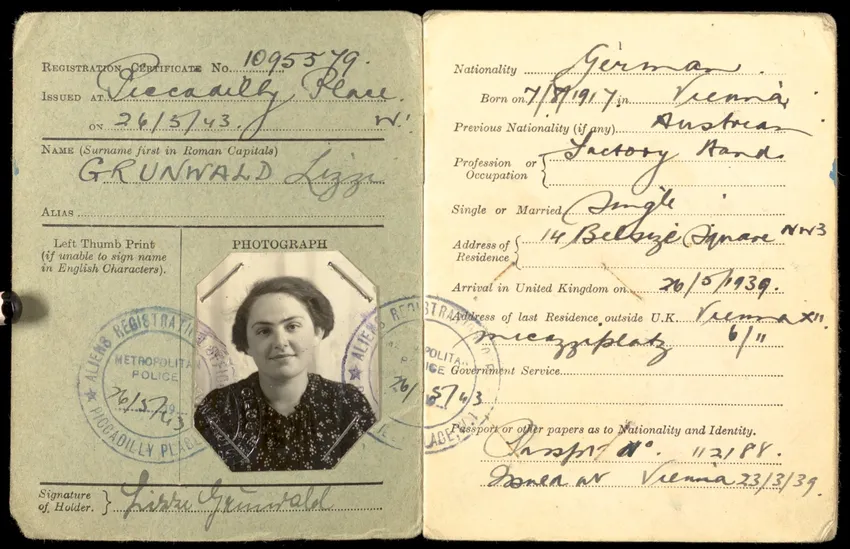 REGISTRATION CERTIFICATE No. 1095579.
ISSUED AT Piccadilly Place.
ON 26/5/43. W1
NAME (Surname first in Roman Capitals)
GRUNWALD Lizzi
ALIAS
Left Thumb Print
(if unable to sign name
in English Characters).
PHOTOGRAPH
ALIENS REGISTRATION OFFICE
METROPOLITAN
POLICE
26/5/43
PICCADILLY PLACE
ALIENS REGISTRATION
POLITA
ICE
26/5/43
PLACE, W.1
Signature
of Holder.
Lizzi Grünwald
Nationality German
Born on 7/8/1917 in Vienna
Previous Nationality (if any) Austrian
Profession or
Occupation
Factory Hand
Single or Married Single
Address of
Residence
14 Belsize Square NW3
Arrival in United Kingdom on 26/5/1939.
Address of last Residence outside U.K. Vienna XII.
6/11
Government Service
Passport or other papers as to Nationality and Identity.
Passport No. 112188.
Issued at Vienna 23/3/39.